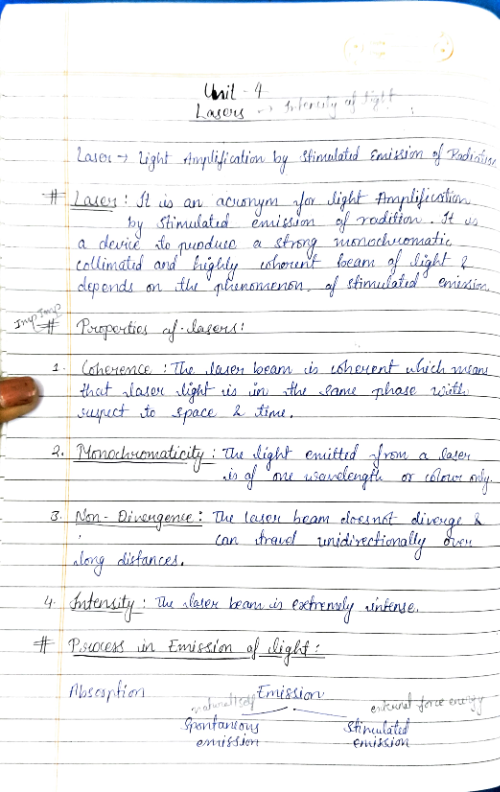 Unit - 4
Lasers → Intensity of light
Laser → Light Amplification by Stimulated Emission of Radiation
# Laser : It is an acronym for light Amplification
by Stimulated emission of radition. It is
a device to produce a strong monochromatic
collimated and highly coherent beam of light &
depends on the phenomenon of stimulated emission.
Imp Imp # Properties of lasers :
1. Coherence : The laser beam is coherent which means
that laser light is in the same phase with
respect to space & time.
2. Monochromaticity : The light emitted from a laser
is of one wavelength or colour only.
3. Non-Divergence : The laser beam doesnot diverge &
can travel unidirectionally over
long distances.
4. Intensity : The laser beam is extremely intense.
# Process in Emission of light :
Absorption Emission
natural self external force energy
Spontaneous Stimulated
emission emission